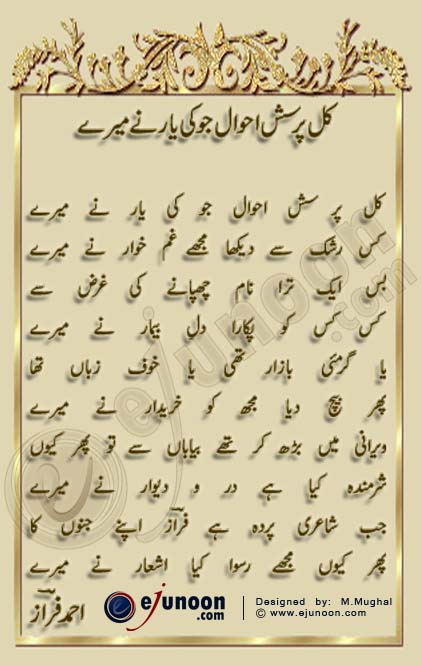 کل پرسش احوال جو کی یار نے میرے
کل پرسش احوال جو کی یار نے میرے
کس رشک سے دیکھا مجھے غم خوار نے میرے
بس ایک ترا نام چھپانے کی غرض سے
کس کس کو پکارا دل بیمار نے میرے
یا گرمئی بازار تھی یا خوف زباں تھا
پھر بیچ دیا مجھ کو خریدار نے میرے
ویرانی میں بڑھ کر تھے بیاباں سے تو پھر کیوں
شرمندہ کیا ہے در و دیوار نے میرے
جب شاعری پردہ ہے فراز اپنے جنوں کا
پھر کیوں مجھے رسوا کیا اشعار نے میرے
احمد فراز
ejunoon.com
Designed by: M.Mughal
© www.ejunoon.com
ejunoon.com